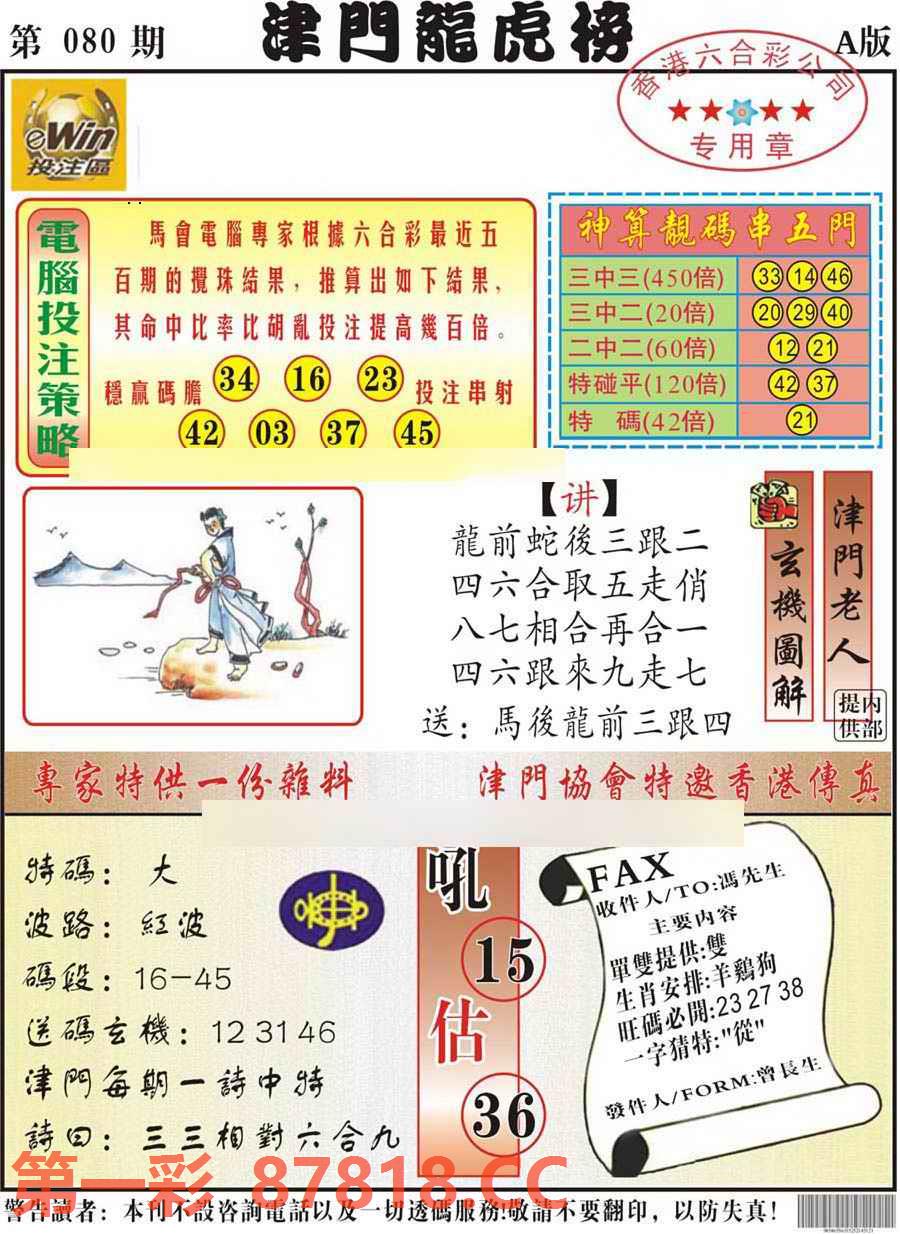 第 080 期
津門龍虎榜
A版
香港六合彩公司
专用章
eWin
投注區
電腦投注策略
馬會電腦專家根據六合彩最近五
百期的攪珠結果，推算出如下結果，
其命中比率比胡亂投注提高幾百倍。
穩贏碼膽 34 16 23 投注串射
42 03 37 45
神算靚碼串五門
三中三(450倍) 33 14 46
三中二(20倍) 20 29 40
二中二(60倍) 12 21
特碰平(120倍) 42 37
特 碼(42倍) 21
【讲】
龍前蛇後三跟二
四六合取五走俏
八七相合再合一
四六跟來九走七
送：馬後龍前三跟四
玄機圖解
津門老人
内部提供
專家特供一份雜料
津門協會特邀香港傳真
特碼：大
波路：紅波
碼段：16-45
送碼玄機：12 31 46
津門每期一詩中特
詩曰：三三相對六合九
吼
15
估
36
FAX
收件人/TO:馮先生
主要内容
單雙提供:雙
生肖安排:羊鷄狗
旺碼必開:23 27 38
一字猜特:"從"
發件人/FORM:曾長生
第一彩 87818.CC
警告讀者：本刊不設咨詢電話以及一切透碼服務!敬請不要翻印，以防失真!